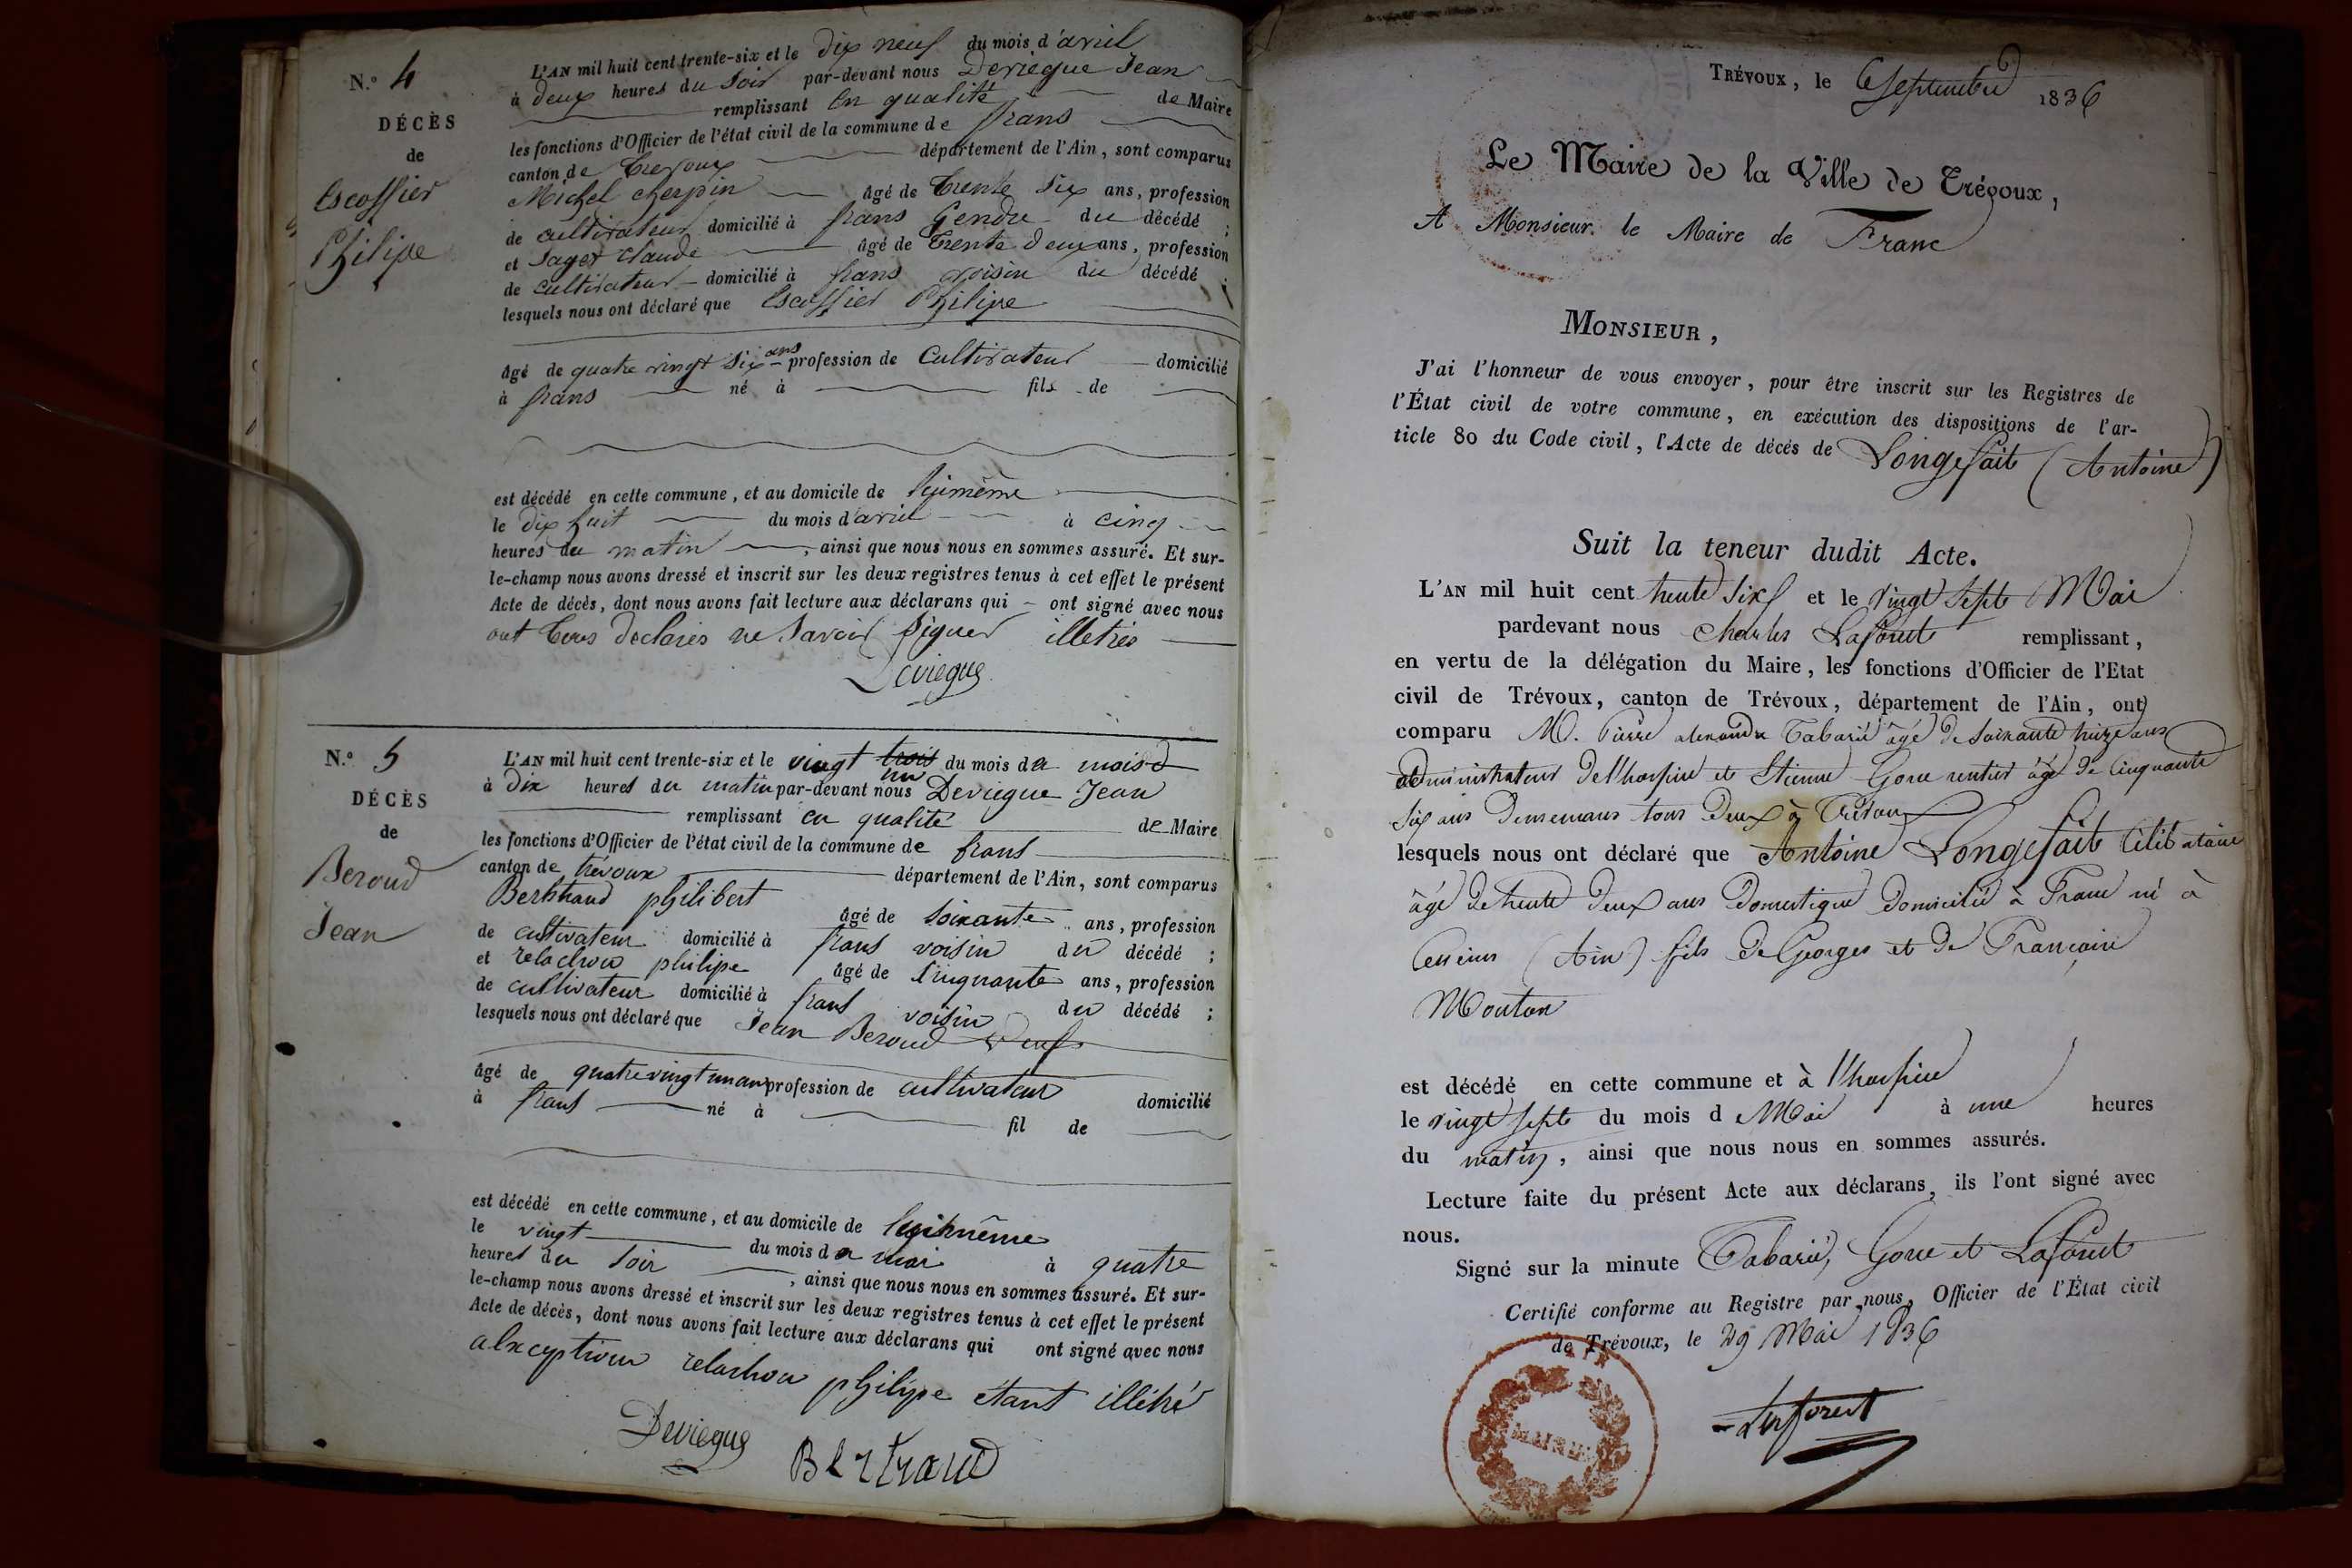 N.º 4
DÉCÈS
de
Escoffier
Philipe
L'AN mil huit cent trente-six et le dix neuf du mois d'avril
à deux heures du soir par-devant nous Deviegue Jean
remplissant en qualité de Maire
les fonctions d'Officier de l'état civil de la commune de frans
canton de trevoux département de l'Ain, sont comparus
Michel cherpin âgé de trente six ans, profession
de cultivateur domicilié à frans Gendre du décédé ;
et claude âgé de trente deux ans, profession
de cultivateur domicilié à frans voisin du décédé ;
lesquels nous ont déclaré que Escoffier Philipe
âgé de quatre vingt six ans profession de Cultivateur domicilié
à frans né à fils de
est décédé en cette commune, et au domicile de luimême
le dix huit du mois d'avril à cinq
heures du matin, ainsi que nous nous en sommes assuré. Et sur-
le-champ nous avons dressé et inscrit sur les deux registres tenus à cet effet le présent
Acte de décès, dont nous avons fait lecture aux déclarans qui ont signé avec nous
ont tous declarés ne savoir signer illetrés
Deviegue
N.º 5
DÉCÈS
de
Beroud
Jean
L'AN mil huit cent trente-six et le vingt trois un du mois de mois d
à dix heures du matin par-devant nous Deviegue Jean
remplissant en qualité de Maire
les fonctions d'Officier de l'état civil de la commune de frans
canton de trévoux département de l'Ain, sont comparus
Berthraud philibert âgé de soixante ans, profession
de cultivateur domicilié à frans voisin du décédé ;
et relachon philipe âgé de cinquante ans, profession
de cultivateur domicilié à frans voisin du décédé ;
lesquels nous ont déclaré que Jean Beroud veuf
âgé de quatrevingt un ans profession de cultivateur domicilié
à frans né à fil de
est décédé en cette commune, et au domicile de luimême
le vingt du mois de mai à quatre
heures du soir, ainsi que nous nous en sommes assuré. Et sur-
le-champ nous avons dressé et inscrit sur les deux registres tenus à cet effet le présent
Acte de décès, dont nous avons fait lecture aux déclarans qui ont signé avec nous
relachon philipe étant illétré
Deviegue Bertraud
TRÉVOUX, le 6 septembre 1836
Le Maire de la Ville de Trévoux,
A Monsieur le Maire de Franc
MONSIEUR,
J'ai l'honneur de vous envoyer, pour être inscrit sur les Registres de
l'État civil de votre commune, en exécution des dispositions de l'ar-
ticle 80 du Code civil, l'Acte de décès de Longefait (Antoine)
Suit la teneur dudit Acte.
L'AN mil huit cent trente six et le vingt sept Mai
pardevant nous Charles Laforest remplissant,
en vertu de la délégation du Maire, les fonctions d'Officier de l'Etat
civil de Trévoux, canton de Trévoux, département de l'Ain, ont
comparu M. Pierre alexandre Tabarié âgé de soixante treize ans
administrateur de l'hospice et Etienne Gone rentier âgé de cinquante
six ans demeurans tous deux à Trévoux
lesquels nous ont déclaré que Antoine Longefait Célibataire
âgé de trente deux ans Domestique domicilié à Franc né à
(Ain) fils de Georges et de Françoise
Mouton
est décédé en cette commune et à l'hospice
le vingt sept du mois d Mai à une heures
du matin, ainsi que nous nous en sommes assurés.
Lecture faite du présent Acte aux déclarans, ils l'ont signé avec
nous.
Signé sur la minute Tabarié, Gone et Laforest
Certifié conforme au Registre par nous, Officier de l'État civil
de Trévoux, le 29 Mai 1836
Laforest
MAIRIE